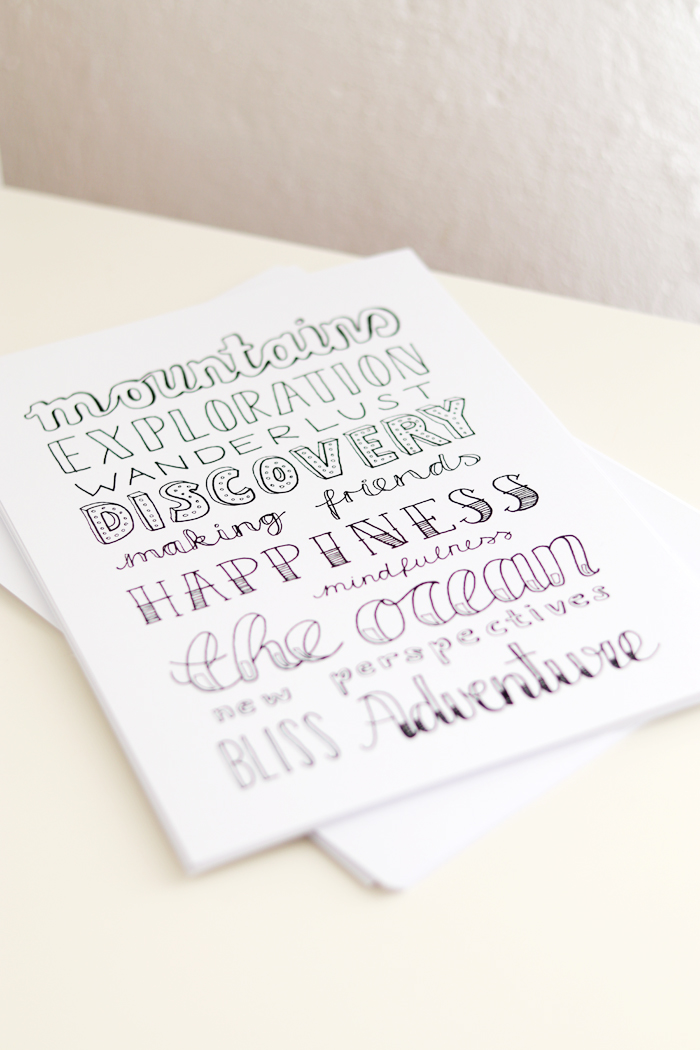 mountains
EXPLORATION
WANDERLUST
DISCOVERY
making friends
HAPPINESS
mindfulness
the ocean
new perspectives
BLISS Adventure